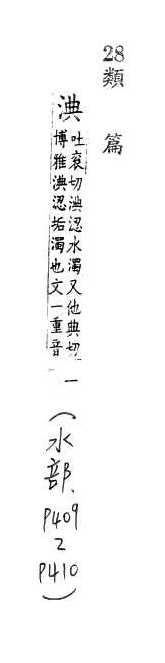 28類篇
淟
吐袞切淟涊水濁又他典切
博雅淟涊垢濁也文一重音
一（水部、P409 2 P410）